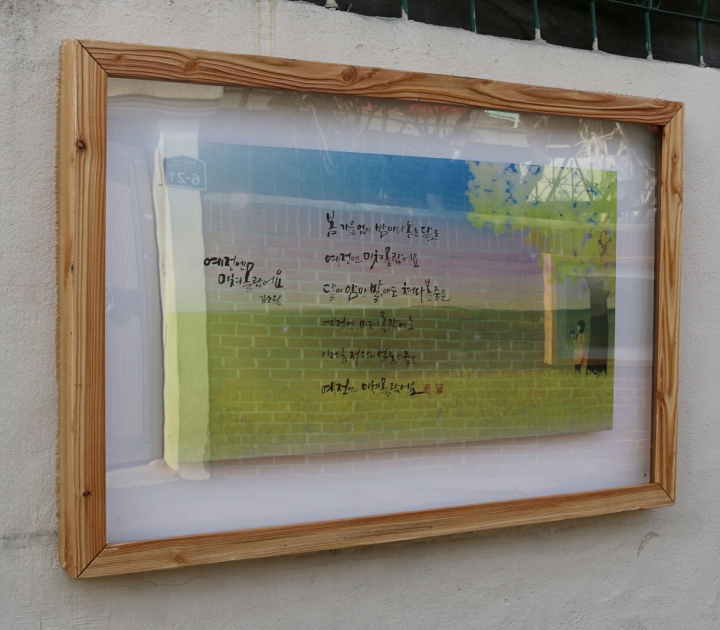 예전엔
미처몰랐어요
김소월
봄 가을 없이 밤마다 돋는 달도
예전엔 미처 몰랐어요
달이 암만 밝아도 쳐다볼 줄을
예전엔 미처 몰랐어요
이제금 저 달이 설움인 줄은
예전엔 미처 몰랐어요